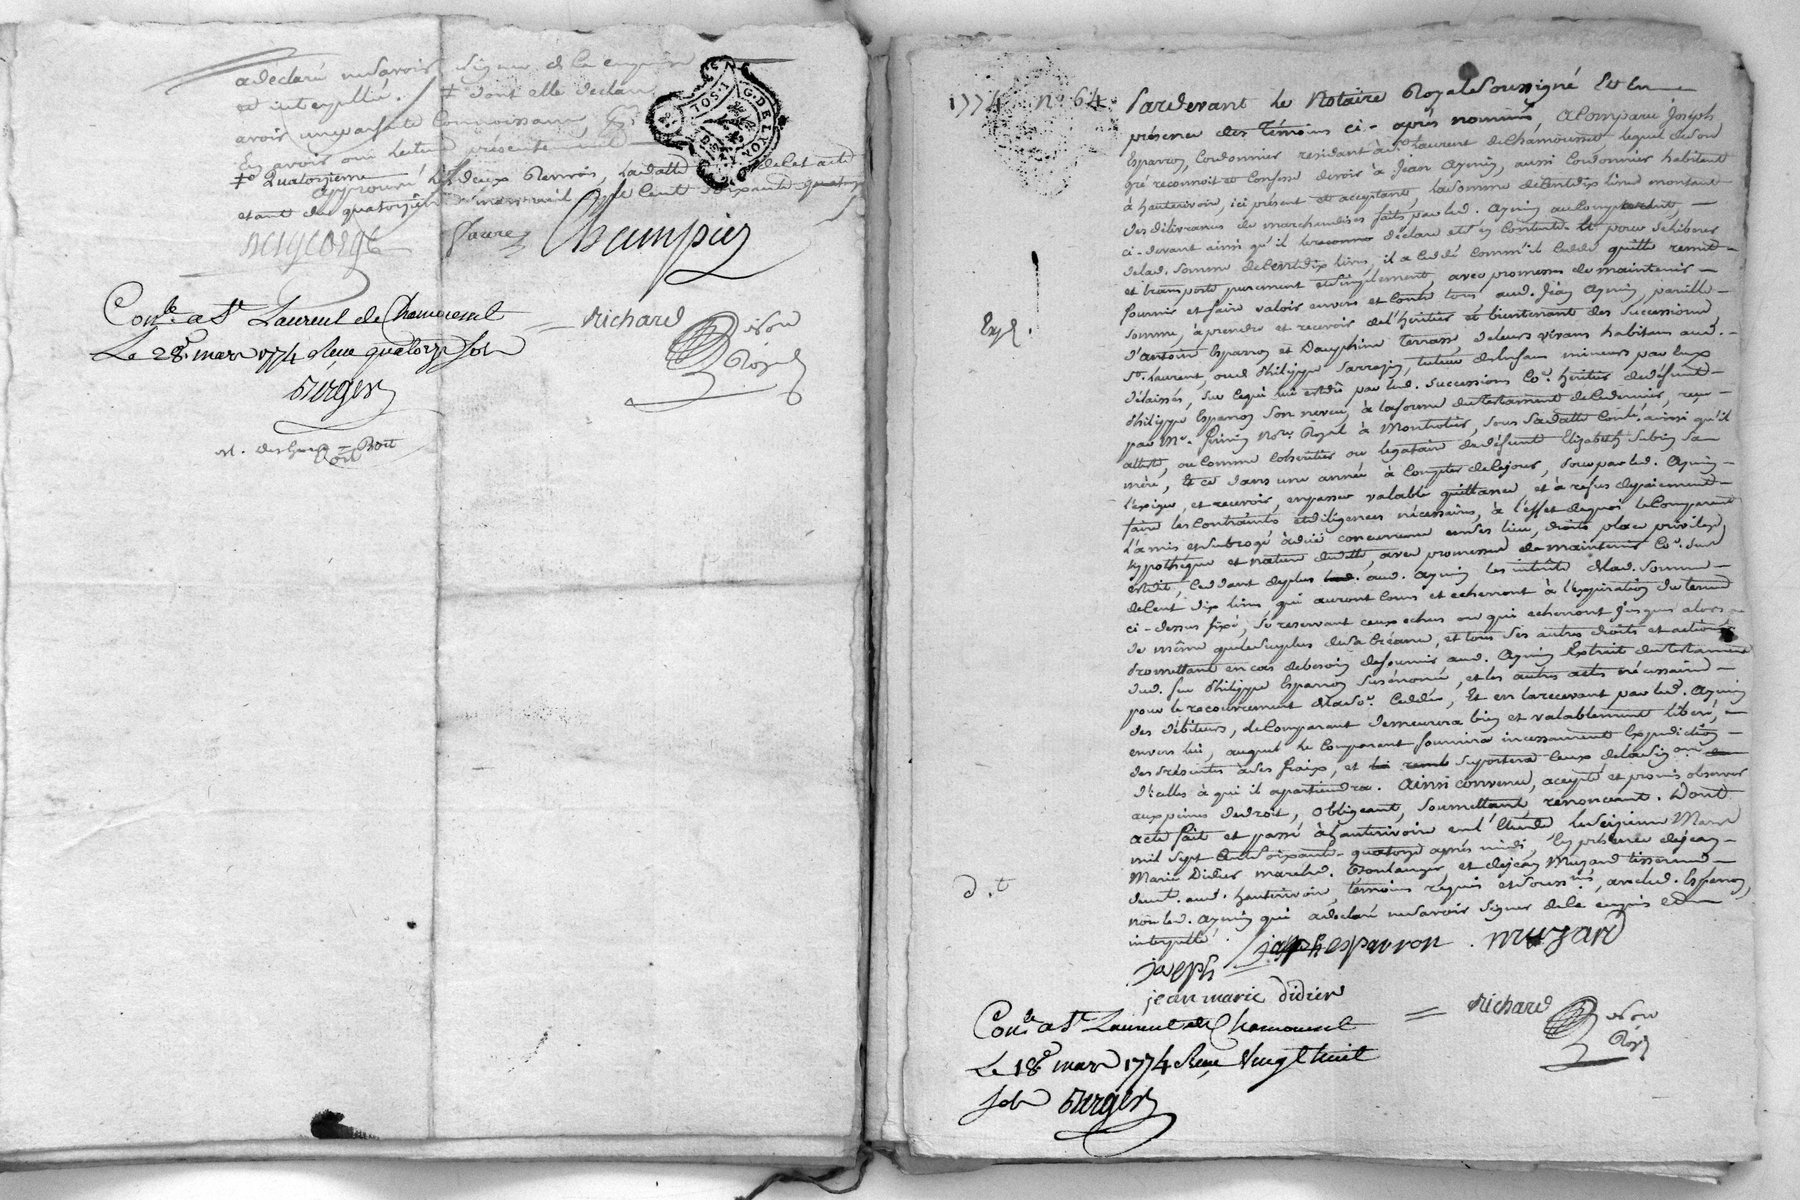 a declaré ne savoir signer de ce enquis
et interpellé. ‡ dont elle declare
avoir une parfaite Connoissance
En avoir oui lecture présentement
‡ Quatorzieme
approuvé les deux Renvois, la datte de cet acte
etant du quatorzieme mars mil sept Cent soixante quatorze
G. DE LYON
1. SOL
Faure Champier
Con.le a St Laurent de Chamousset
Le 28.e mars 1774 Reçu quatorze sols
Berger
Richard
Nore
Royal
1774 n.o 64.
Pardevant le Notaire Royal Soussigné Et en
présence des Témoins ci-après nommés, a Comparu Joseph
Esparron, Cordonnier residant à St Laurent de Chamousset lequel de son
gré reconnoit et Confesse devoir à Jean Aymin, aussi Cordonnier habitant
à hauterivoire, ici present et acceptant, la somme de Cent dix livres montant
des délivrances de marchandises faites par led. Aymin au Comparant,
ci-devant ainsi qu'il le reconnoit déclare et s'en Contente. Et pour se liberer
de lad. somme de Cent dix livres, il a Cedé Comm'il Cedde quitte remet
et transporte purement et simplement, avec promesse de maintenir
fournir et faire valoir envers et Contre tous aud. Jean Aymin, pareille
somme, à prendre et recevoir de l'héritier et bientenant des successions,
d'antoine Esparron et Dauphine Terrasse de leurs vivans habitans aud.
Expé.
St. Laurent, ou de Philippe Sarrazin, tuteur des enfans mineurs par eux
délaissés, sur ce qui lui est dû par led. successions Co.e héritier de défunt
Philippe Esparron son neveu, à la forme du testament de ce dernier, reçu
par Me. Guinin nore. Royal à Montrotier, sous sa datte Conté, ainsi qu'il
atteste, ou comme Coheritier ou legataire de défunte Elizabeth Subrin sa
mère, Et ce dans une année à Compter de ce jour, pour par led. Aymin
l'exiger, et recevoir, en passer valable quittance et à refus de paiement
faire les Contraintes et diligences nécessaires, à l'effet de quoi le Comparant
l'a mis et subrogé à due concurrence en ses lieu, droits, place privilege
hypothéque et nature de dette, avec promesse de maintenir Co.e dessus
est dit, Cedant de plus aud. Aymin les intérêts de lad. somme
de Cent dix livres qui auront Cours et echerront à l'expiration du terme
ci-dessus fixé, se reservant ceux echus ou qui echerront jusques alors
de même que le surplus de sa Créance, et tous ses autres droits et actions
Promettant en cas de besoin de fournir aud. Aymin Extrait du testament
dud. feu Philippe Esparron susénoncé, et les autres actes nécessaires
pour le recouvrement de la so.e Cedée, Et en la recevant par led. Aymin
des débiteurs, le Comparant demeurera bien et valablement liberé,
envers lui, auquel le Comparant fournira incessament Expedition
des présentes à ses fraix, et suportera ceux de la sig.on
d'icelles à qui il apartiendra. Ainsi convenu, accepté et promis observer
aux peines de droit, obligeant, soumettant, renonceant. Dont
acte fait et passé à hauterivoire en l'Etude le seizieme Mars
mil sept Cent soixante-quatorze après midi, En présence de jean
d. t
Marie Didier march.d Boulanger, et de jean Muzard tisserand
deme.t aud. hauterivoire témoins requis et sous.nés, avec led. Esparron,
non led. Aymin qui a declaré ne savoir signer de ce enquis et
interpellé.
joseph esparron. muzard
joseph
jean marie didier
Richard
Nore
Royl
Con.le a St Laurent de Chamousset
Le 18.e mars 1774 Reçu Vingt huit
sols Berger